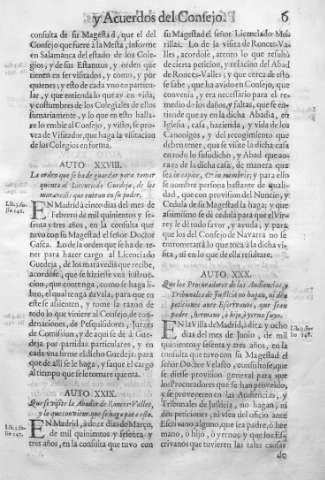 y Acuerdos del Consejo. 6
consulta de su Magestad, que el del
Consejo que fuere à la Mesta, informe
en Salamanca del estado de los Cole-
gios, y de sus Estatutos, y orden que
tienen en ser visitados, y como, y por
quienes, y esto de cada vno en particu-
lar, y que entienda lo que ay en vida,
y costumbres de los Colegiales de ellos
sumariamente, y lo que en esto hallare
lo recite al Consejo, y visto, se pro-
vea de Visitador, que haga la visitacion
de los Colegios en forma.
AUTO XXVIII.
La orden que se ha de guardar para tener
quenta el Licenciado Guedeja, de los
maravedis que entran en su poder.
EN Madrid à cinco dias del mes de
Febrero de mil quinientos y se-
senta y tres años, en la consulta que
tuvo con su Magestad el señor Doctor
Gasca. Lo de la orden que se ha de te-
ner para hazer cargo al Licenciado
Guedeja, de los maravedis que recibe,
acordose, que se hiziesse vna instruc-
cion, que contenga, como se haga li-
bro, el qual tenga para que en
el se assienten, y tome la razon de
todo lo que viniere al Consejo, de con-
denaciones, de Pesquisidores, Juezes
de Comission, y de aqui se dè à Gue-
deja por partidas particulares, y en
cada vna firme el dicho Guedeja, para
que de alli se le haga, y saque el cargo
al tiempo que se le tomare quenta.
AUTO XXIX.
Que se visite la Abadia de Ronces-Valles,
y lo que contiene, que se haga para esto.
EN Madrid, à doze dias de Março,
de mil quinientos y sesenta y
tres años, en la consulta que tuvo con
su Magestad el señor Licenciado Mon-
rillas. Lo de la visita de Ronces-Va-
lles, acordose, atento lo que resultò
de cierta peticion, y relacion del Abad
de Ronces-Valles, y que cerca de esto
se sabe, que ha avido en Consejo, que
conviene, y era necessario para el re-
medio de los daños, y faltas, que se en-
tiende que ay en la dicha Abadia, en
Iglesia, casa, hazienda, y vida de los
Canonigos, y del recogimiento que
deben tener, que se visite la dicha casa
en todo lo susodicho, y Abad que aora
es de la dicha casa, de manera, que
tàm in capite, & in membris; y para ello
se nombre persona bastante de quali-
dad, que con provision del Nuncio, y
Cedula de su Magestad la haga; y que
assimismo se dè cedula para que el Vir-
rey le dè todo favor, y ayuda, y para
que los del Consejo de Navarra no se
entrometan à lo que toca à la dicha vi-
sita, ni en lo que de ella resultare.
AUTO XXX.
Que los Procuradores de las Audiencias, y
Tribunales de Justicia no hagan, ni dèn
peticiones ante Escrivanos, que sean
padre, hermano, ò hijo, ò yerno suyo.
EN la Villa de Madrid, à diez y ocho
dias del mes de Junio, de mil
quinientos y sesenta y tres años, en la
consulta que tuvo con su Magestad el
señor Doctor Velasco, consultose, que
se diesse provision general para que
los Procuradores que se han proveido,
y se proveyeren en las Audiencias, y
Tribunales de Justicia, no hagan, ni
dèn peticiones, ni vsen del oficio ante
Escrivano alguno, que sea padre, ò her-
mano, ò hijo, ò yerno; y que los Es-
crivanos que tuvieren las tales causas
de